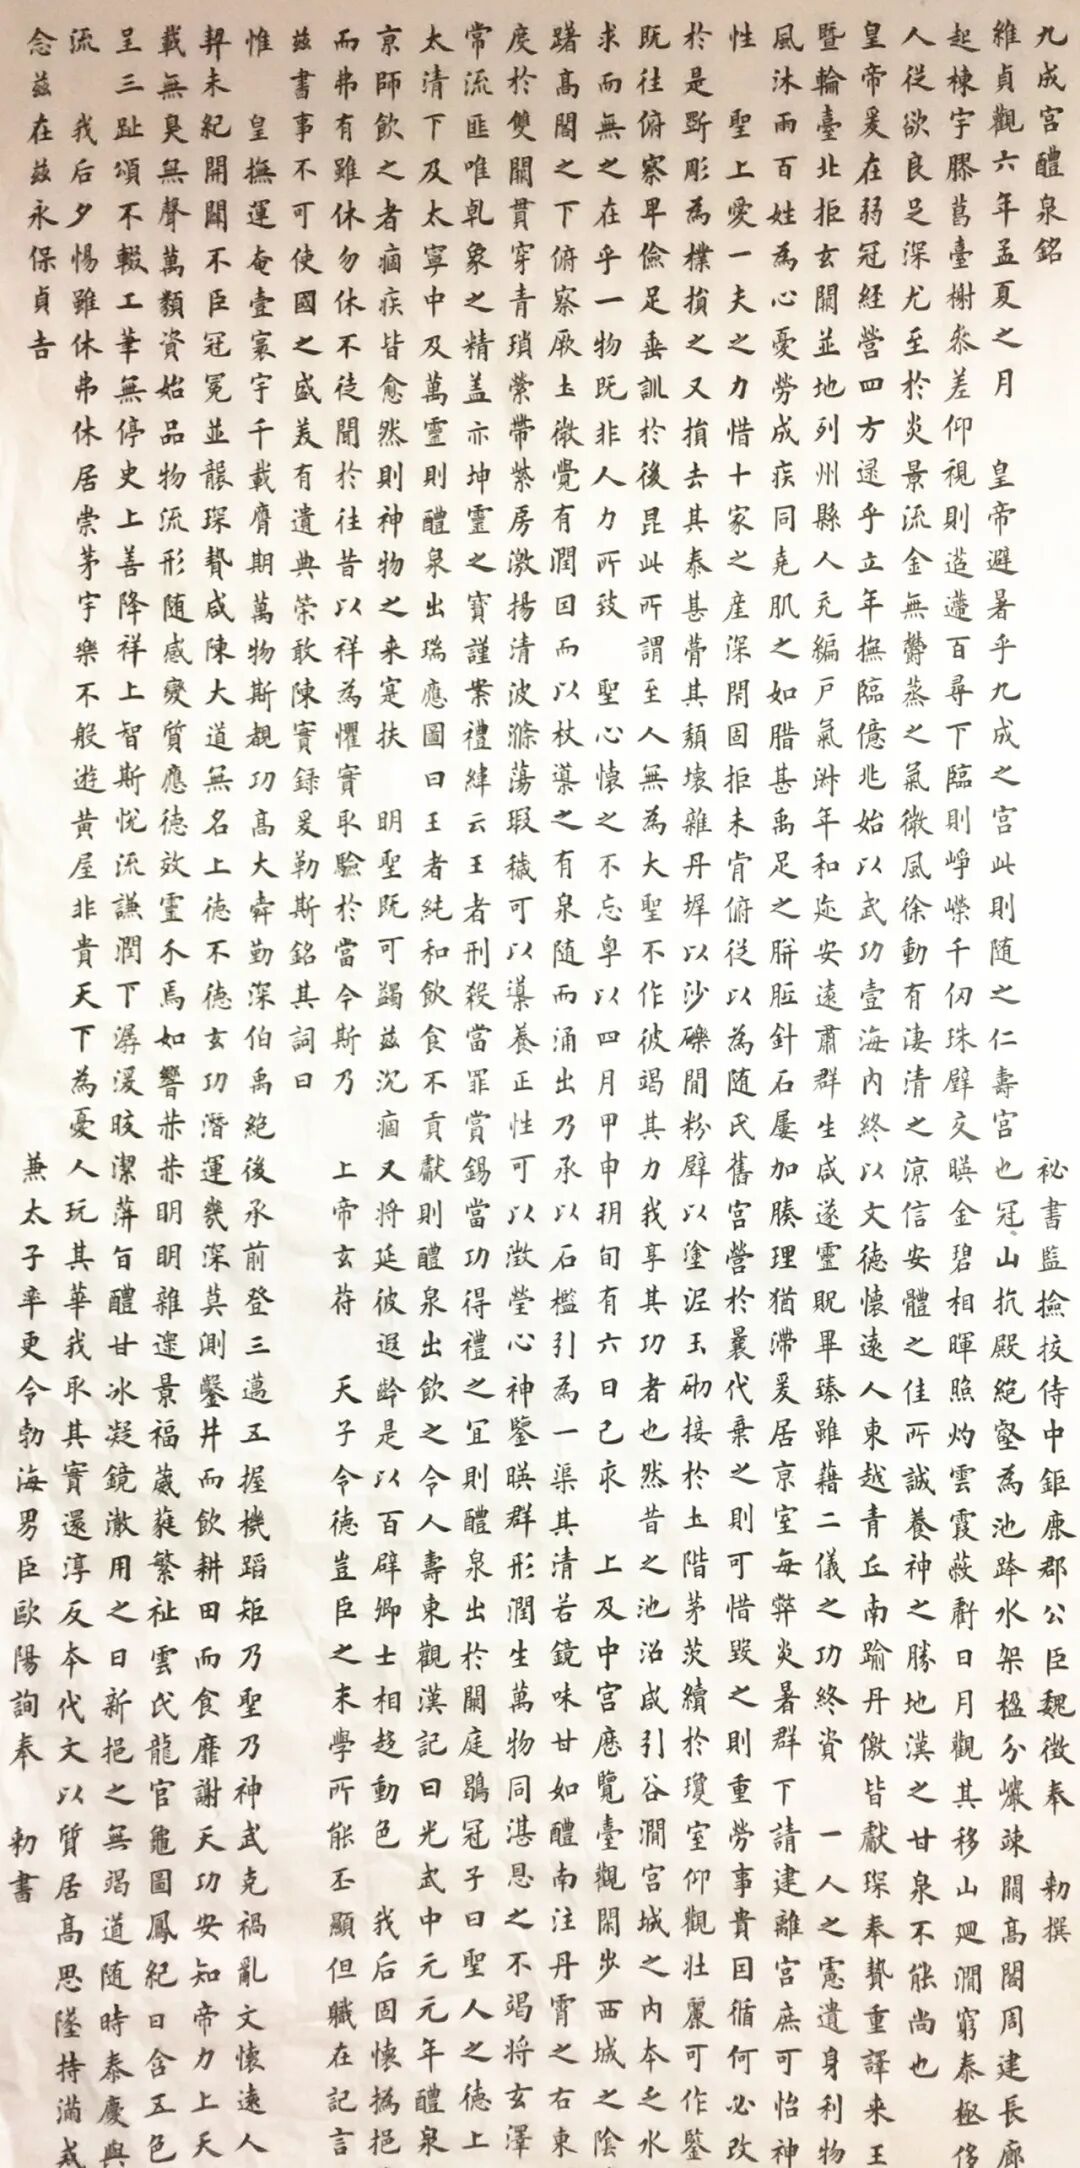 九成宮醴泉銘 祕書監撿挍侍中鉅鹿郡公臣魏徵奉 勅撰
維貞觀六年孟夏之月 皇帝避暑乎九成之宮此則随之仁壽宮也冠山抗殿絶壑為池跨水架楹分巖竦闕高閣周建長廊
起棟宇膠葛臺榭叅差仰視則迢遰百尋下臨則崢嶸千仞珠璧交暎金碧相暉照灼雲霞蔽虧日月觀其移山迴澗窮泰極侈
人從欲良足深尤至於炎景流金無鬱蒸之氣微風徐動有凄清之凉信安體之佳所誠養神之勝地漢之甘泉不能尚也
皇帝爰在弱冠經營四方逯乎立年撫臨億兆始以武功壹海内終以文德懷遠人東越青丘南踰丹儌皆獻琛奉贄重譯来王
暨輪臺北拒玄闕並地列州縣人充編戶氣淑年和迩安遠肅群生咸遂靈貺畢臻雖藉二儀之功終資 一人之慮遺身利物
風沐雨百姓為心憂勞成疾同堯肌之如腊甚禹足之胼胝針石屢加腠理猶滯爰居京室每弊炎暑群下請建離宮庶可怡神
性 聖上愛一夫之力惜十家之産深閇固拒未肯俯從以為随氏舊宮營於曩代棄之則可惜毀之則重勞事貴因循何必改
於是斲彫為樸損之又損去其泰甚葺其頽壞雜丹墀以沙礫間粉壁以塗泥玉砌接於土階茅茨續於瓊室仰觀壯麗可作鑒
既往俯察卑儉足垂訓於後昆此所謂至人無為大聖不作彼竭其力我享其功者也然昔之池沼咸引谷澗宮城之内本乏水
求而無之在乎一物既非人力所致 聖心懷之不忘粤以四月甲申朔旬有六日己亥 上及中宮歴覽臺觀閑步西城之陰
躇高閣之下俯察厥土微覺有潤因而以杖導之有泉随而涌出乃承以石檻引為一渠其清若鏡味甘如醴南注丹霄之右東
度於雙闕貫穿青瑣縈帶紫房激揚清波滌蕩瑕穢可以導養正性可以澂瑩心神鑒暎群形潤生萬物同湛恩之不竭將玄澤
常流匪唯乾象之精盖亦坤靈之寶謹案禮緯云王者刑殺當罪賞錫當功得禮之宜則醴泉出於闕庭鶡冠子曰聖人之德上
太清下及太寧中及萬靈則醴泉出瑞應圖曰王者純和飲食不貢獻則醴泉出飲之令人壽東觀漢記曰光武中元元年醴泉
京師飲之者痼疾皆愈然則神物之来寔扶 明聖既可蠲兹沉痼又將延彼遐齡是以百辟卿士相趍動色 我后固懷撝挹
而弗有雖休勿休不徒聞於往昔以祥為懼實取驗於當今斯乃 上帝玄苻 天子令德豈臣之末學所能丕顯但職在記言
兹書事不可使國之盛美有遺典策敢陳實録爰勒斯銘其詞曰
惟 皇撫運奄壹寰宇千載膺期萬物斯覩功高大舜勤深伯禹絶後承前登三邁五握機蹈矩乃聖乃神武克禍亂文懷遠人
契未紀開闢不臣冠冕並襲琛贄咸陳大道無名上德不德玄功潛運幾深莫測鑿井而飲耕田而食靡謝天功安知帝力上天
載無臭無聲萬類資始品物流形随感變質應德效靈介焉如響赫赫明明雜遝景福葳蕤繁祉雲氏龍官龜圖鳳紀日含五色
呈三趾頌不輟工筆無停史上善降祥上智斯悅流謙潤下潺湲皎潔蓱旨醴甘冰凝鏡澈用之日新挹之無竭道随時泰慶與
流 我后夕惕雖休弗休居崇茅宇樂不般遊黄屋非貴天下為憂人玩其華我取其實還淳反本代文以質居高思墜持滿戒
念兹在兹永保貞吉 兼太子率更令勃海男臣歐陽詢奉 勅書